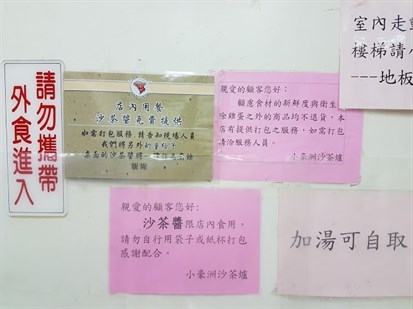 請勿攜帶
外食進入
店內用餐
沙茶醬免費提供
如需打包服務,請告知現場人員
我們將另外
桌面的沙茶醬
親愛的顧客您好:
顧慮食材的新鮮度與衛生
除雞蛋之外的商品均不退貨,本
店有提供打包之服務,如需打包
請洽服務人員。
小豪洲沙茶爐
親愛的顧客您好:
沙茶醬限店內食用,
請勿自行用袋子或紙杯打包
感謝配合。
小豪洲沙茶爐
加湯可自取
室內走
樓梯請
---地板